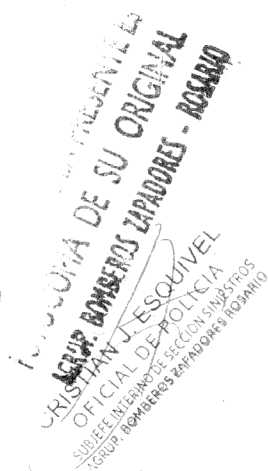 PRESENTE ES
DE SU ORIGINAL
AGRUP. BOMBEROS ZAPADORES - ROSARIO
CRISTIAN J. ESQUIVEL
OFICIAL DE POLICIA
SUBJEFE INTERINO DE SECCION SINIESTROS
AGRUP. BOMBEROS ZAPADORES ROSARIO